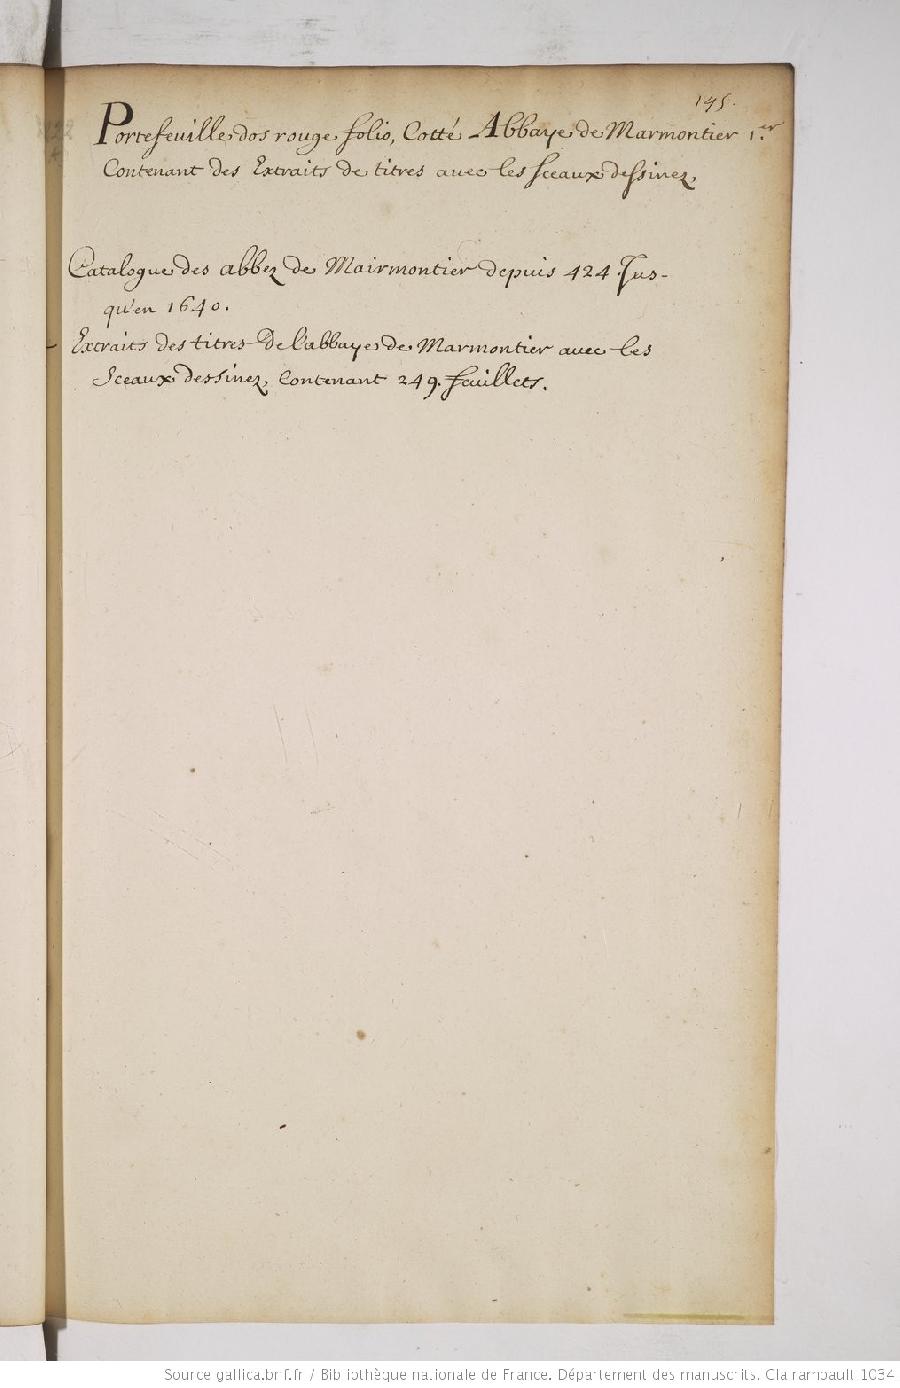 195.
Portefeuille dos rouge folio, Cotté Abbaye de Marmontier 1.er
Contenant des Extraits de titres avec les sceaux dessinez,
Catalogue des abbez de Mairmontier depuis 424. Jus-
qu'en 1640.
Extraits des titres de l'abbaye de Marmontier avec les
Sceaux dessinez, Contenant 249. feuillets.
Source gallica.bnf.fr / Bibliothèque nationale de France. Département des manuscrits. Clairambault 1034